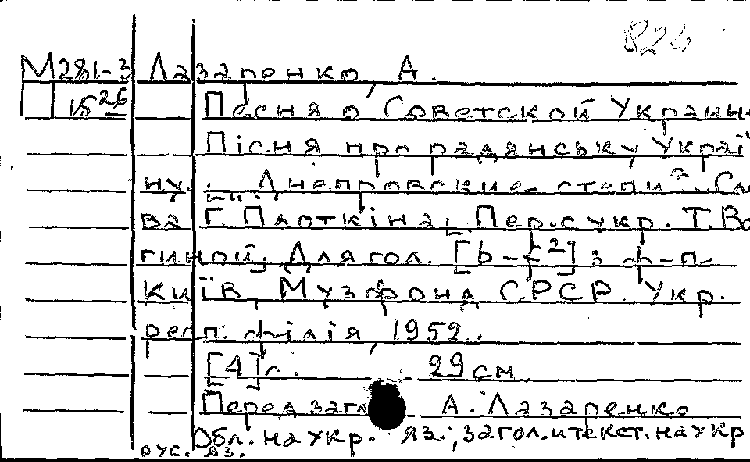 826
М281-3 Лазаренко, А.
П 15 26 Песня о Советской Украине
Пісня про радянську Украї
ну. : "Днепровские степи". Сло
ва Г. Плоткіна, Пер. с укр. Т. Во
гиной. Для гол. [b-f²] з ф-п.
Київ, Музфонд СРСР. Укр.
респ. філія, 1952.
[4] с. 29 см
Перед загл А. Лазаренко
Обл. на укр. яз., загол. и текст. на укр
рус. яз.